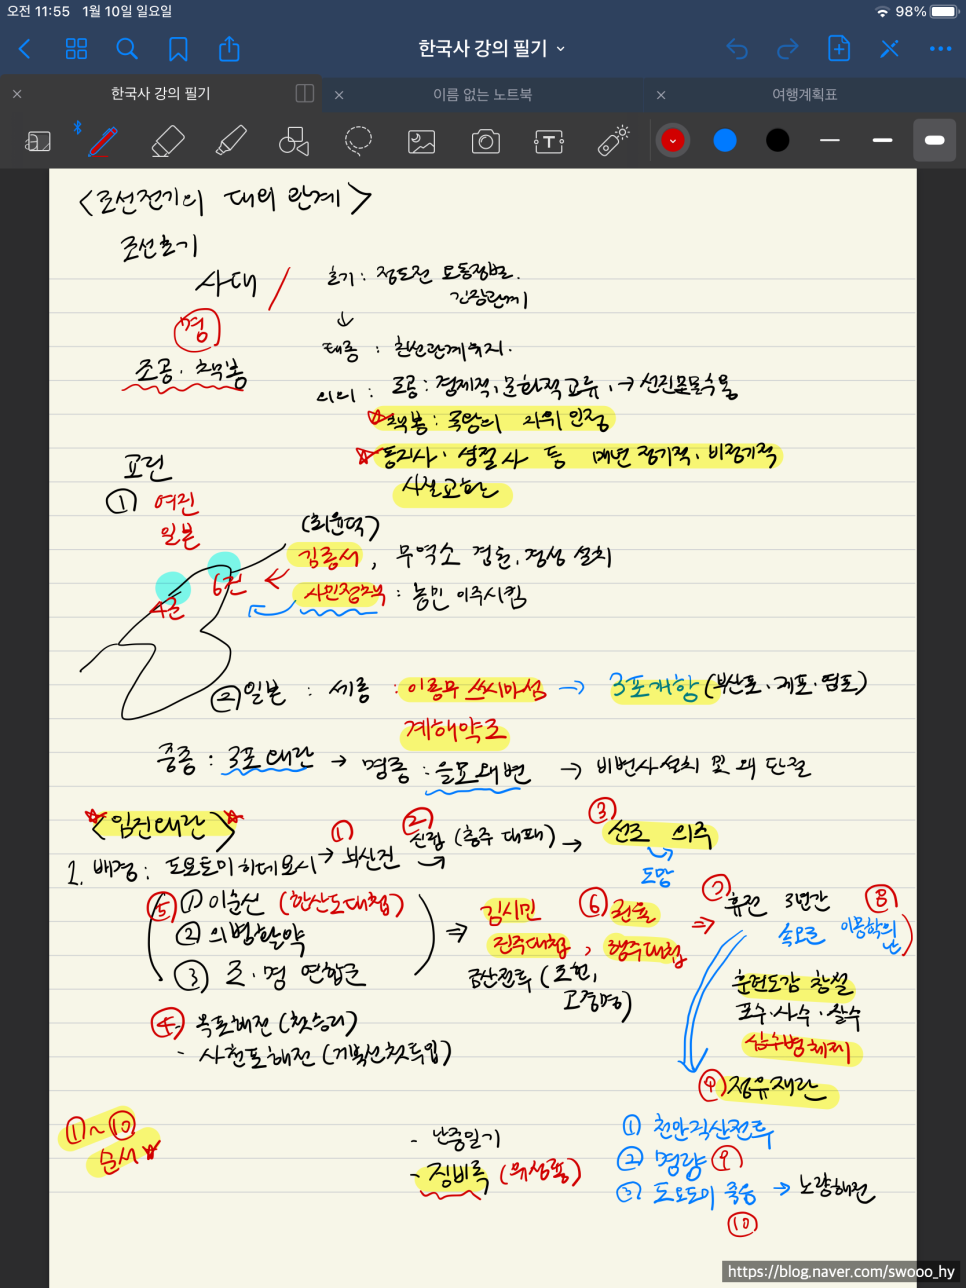 오전 11:55 1월 10일 일요일 98%
한국사 강의 필기
한국사 강의 필기 이름 없는 노트북 여행계획표
<조선전기의 대외 관계>
조선초기
사대 / 초기 : 정도전 요동정벌.
긴장관계
명 ↓
태종 : 친선관계유지.
조공·책봉
의의 : 조공 : 경제적, 문화적 교류, → 선진문물수용
책봉 : 국왕의 지위 인정
동지사·성절사 등 매년 정기적·비정기적
사절교환
교린
① 여진
일본
(최윤덕)
김종서, 무역소 경원, 경성 설치
6진 ←
4군
사민정책 : 농민 이주시킴
② 일본 : 세종 : 이종무 쓰시마섬 → 3포개항 (부산포·제포·염포)
계해약조
중종 : 3포왜란 → 명종 : 을묘왜변 → 비변사설치 및 왜 단절
<임진왜란>
1. 배경 : 도요토미히데요시 → ① 부산진 ② 신립 (충주 대패) → ③ 선조 의주
도망
⑤ ① 이순신 (한산도대첩)
② 의병활약
③ 조·명 연합군
⇒ 김시민 ⑥ 권율
진주대첩, 행주대첩
금산전투 (조헌,
고경명)
⇒ ⑦ 휴전 3년간 ⑧
속오군 이몽학의
난
훈련도감 창설
포수·사수·살수
삼수병체제
④ - 옥포해전 (첫승리)
- 사천포해전 (거북선첫투입)
⑨ 정유재란
① 천안직산전투
② 명량 ⑨
③ 도요토미 죽음 → 노량해전
⑩
①~⑩
순서
- 난중일기
- 징비록 (유성룡)
https://blog.naver.com/swooo_hy